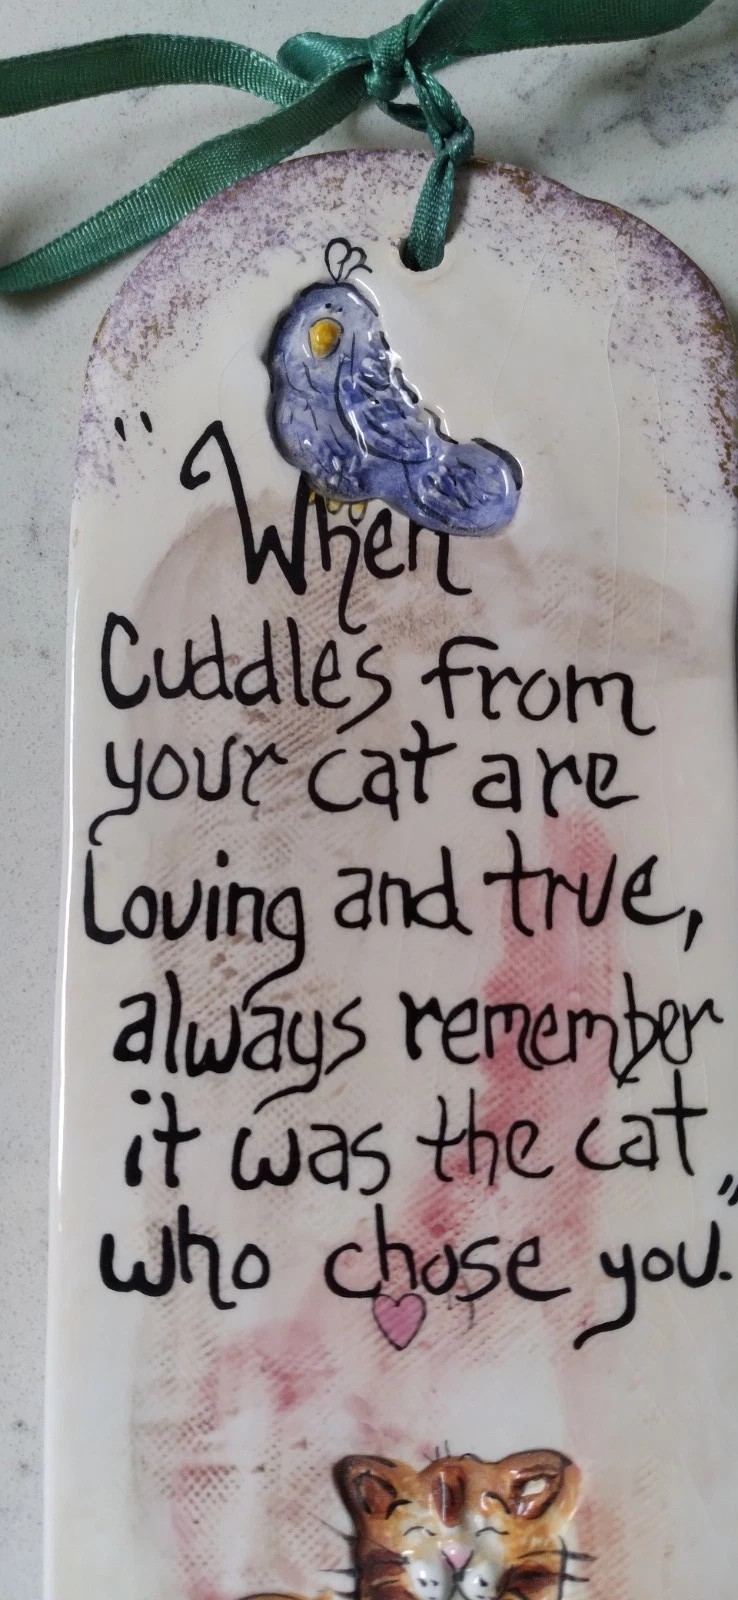 "When
Cuddles from
your cat are
Loving and true,
always remember
it was the cat
who chose you."